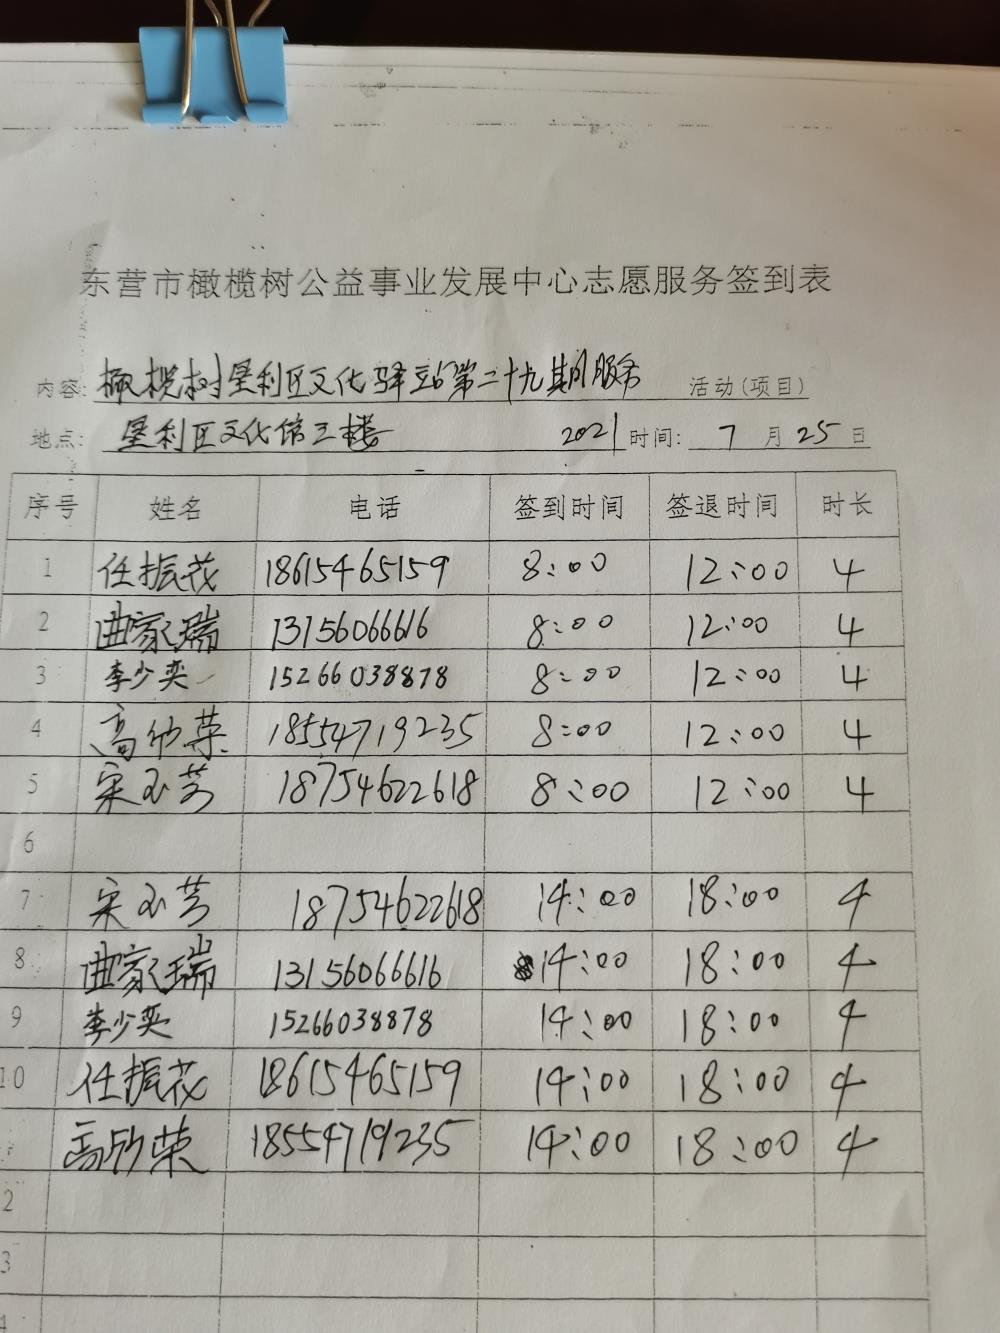 东营市橄榄树公益事业发展中心志愿服务签到表
内容: 橄榄树垦利区文化驿站第二十九期服务 活动(项目)
地点: 垦利区文化馆三楼 2021 时间: 7 月 25 日
序号 姓名 电话 签到时间 签退时间 时长
1 任振花 18615465159 8:00 12:00 4
2 曲家瑞 13156066616 8:00 12:00 4
3 李少奕 15266038878 8:00 12:00 4
4 高欣荣 18554719235 8:00 12:00 4
5 宋玉芳 18754622618 8:00 12:00 4
6
7 宋玉芳 18754622618 14:00 18:00 4
8 曲家瑞 13156066616 14:00 18:00 4
9 李少奕 15266038878 14:00 18:00 4
10 任振花 18615465159 14:00 18:00 4
高欣荣 18554719235 14:00 18:00 4
2
3